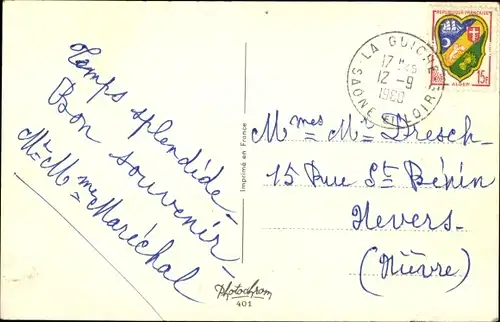 Temps splendide -
Bon souvenir -
Mr Mme Maréchal
Imprimé en France
Photochrom
401
LA GUICHE
17 H45
12 - 9
1960
SAONE ET LOIRE
REPUBLIQUE FRANÇAISE
15F
ALGER
Mmes Mr Dresch -
15 Rue St Bénin
Nevers -
(Nièvre)